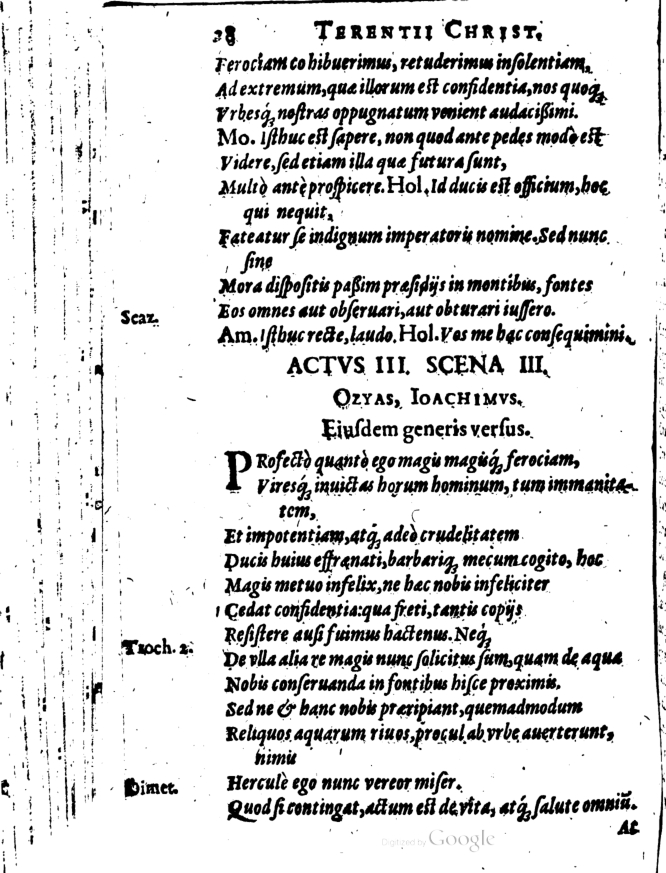 28 TERENTII CHRIST.
Ferociam cohibuerimus, retuderimus insolentiam,
Ad extremum, quæ illorum est confidentia, nos quoq;
Vrbesq́; nostras oppugnatum venient audacißimi.
Mo. Isthuc est sapere, non quod ante pedes modò est
Videre, sed etiam illa quæ futura sunt,
Multò antè prospicere. Hol. Id ducis est officium, hoc
qui nequit,
Fateatur se indignum imperatoris nomine. Sed nunc
sine
Mora dispositis paßim præsidijs in montibus, fontes
Scaz. Eos omnes aut obseruari, aut obturari iussero.
Am. Isthuc recte, laudo. Hol. Vos me hac consequimini.
ACTVS III. SCENA III.
OZYAS, IOACHIMVS.
Eiusdem generis versus.
PRofectò quantò ego magis magisq́; ferociam,
Viresq́; inuictas horum hominum, tum immanita-
tem,
Et impotentiam, atq́; adeò crudelitatem
Ducis huius effrænati, barbariq; mecum cogito, hoc
Magis metuo infelix, ne hæc nobis infeliciter
Cedat confidentia: qua freti, tantis copijs
Resistere ausi fuimus hactenus. Neq́;
Troch. 2. De vlla alia re magis nunc solicitus sum, quam de aqua
Nobis conseruanda in fontibus hisce proximis.
Sed ne & hanc nobis præripiant, quemadmodum
Reliquos aquarum riuos, procul ab vrbe auerterunt,
nimis
Dimet. Herculè ego nunc vereor miser.
Quod si contingat, actum est de vita, atq́; salute omniū.
At
Digitized by Google